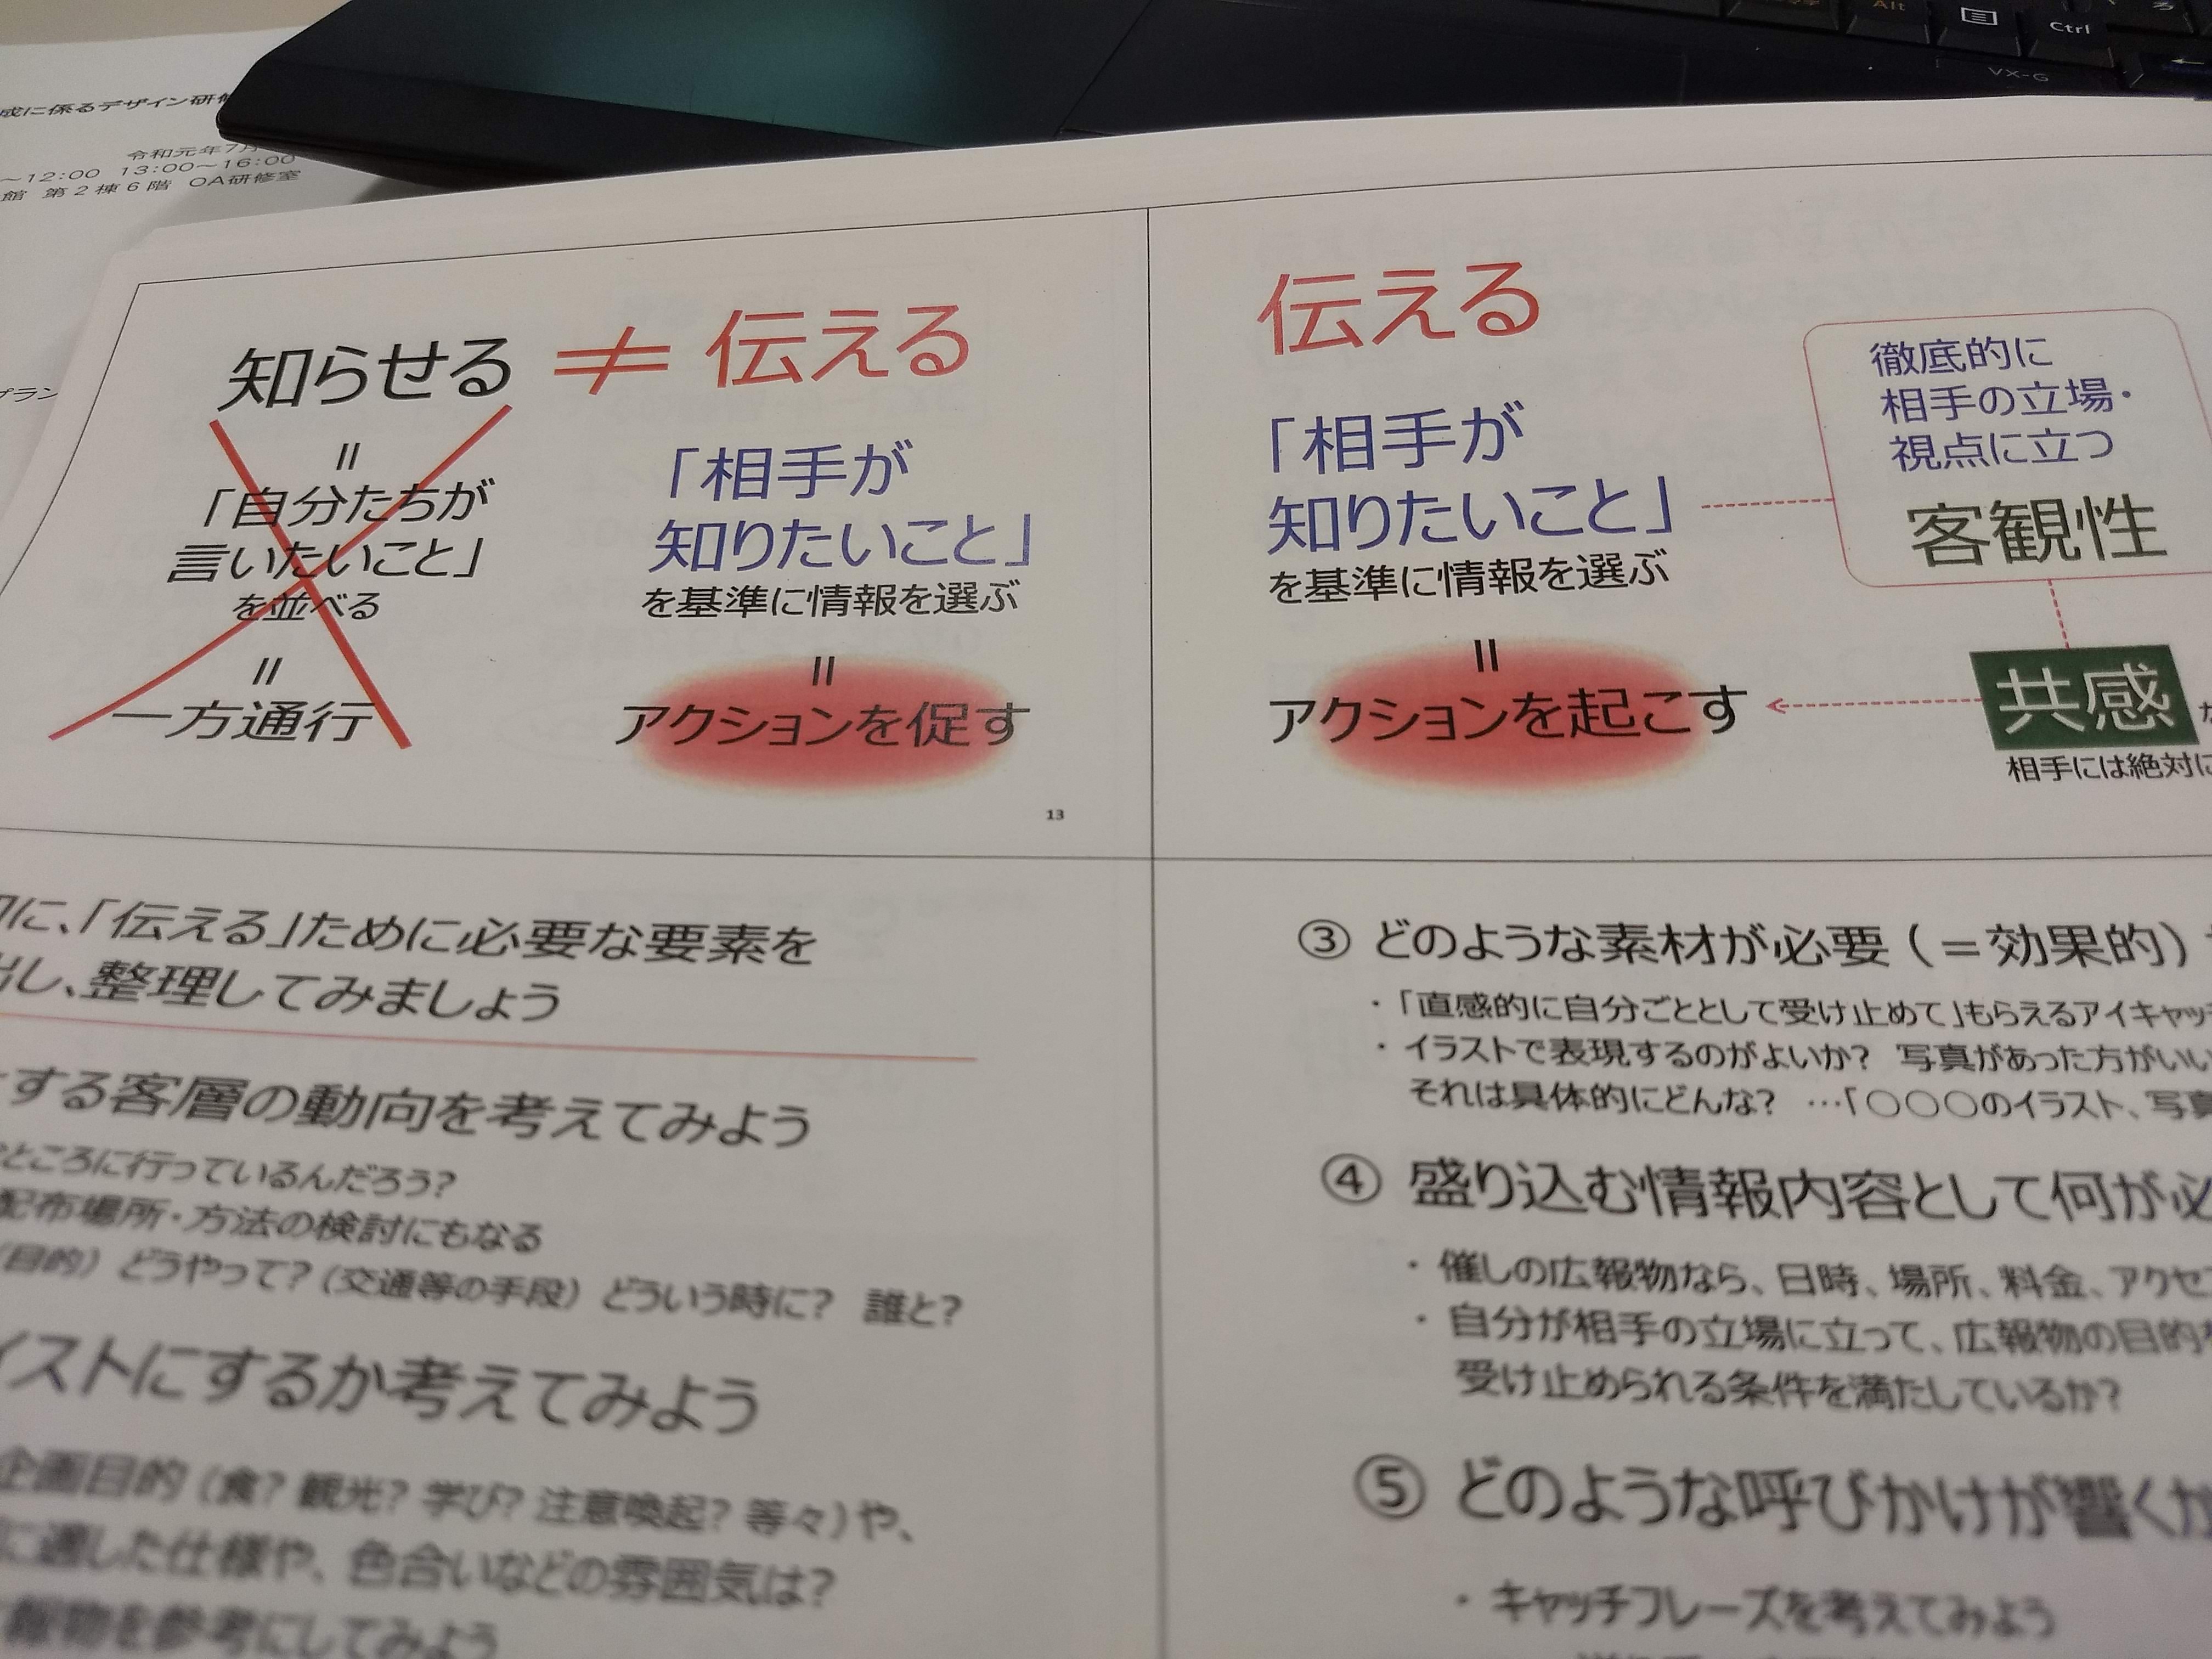 成に係るデザイン研修
令和元年7月
～12:00 13:00～16:00
館 第2棟6階 OA研修室
プラン
Alt
Ctrl
VX-G
知らせる ≠ 伝える
＝
「自分たちが
言いたいこと」
を並べる
＝
一方通行
「相手が
知りたいこと」
を基準に情報を選ぶ
＝
アクションを促す
13
伝える
「相手が
知りたいこと」
を基準に情報を選ぶ
＝
アクションを起こす
徹底的に
相手の立場・
視点に立つ
客観性
共感
相手には絶対に
に、「伝える」ために必要な要素を
出し、整理してみましょう
する客層の動向を考えてみよう
ところに行っているんだろう?
配布場所・方法の検討にもなる
(目的) どうやって? (交通等の手段) どういう時に? 誰と?
イストにするか考えてみよう
企画目的 (食? 観光? 学び? 注意喚起? 等々) や、
に適した仕様や、色合いなどの雰囲気は?
報物を参考にしてみよう
③ どのような素材が必要 (＝効果的)
・「直感的に自分ごととして受け止めて」もらえるアイキャッチ
・イラストで表現するのがよいか? 写真があった方がいい
それは具体的にどんな? …「○○○のイラスト、写真
④ 盛り込む情報内容として何が必
・催しの広報物なら、日時、場所、料金、アクセス
・自分が相手の立場に立って、広報物の目的
受け止められる条件を満たしているか?
⑤ どのような呼びかけが響くか
・キャッチフレーズを考えてみよう